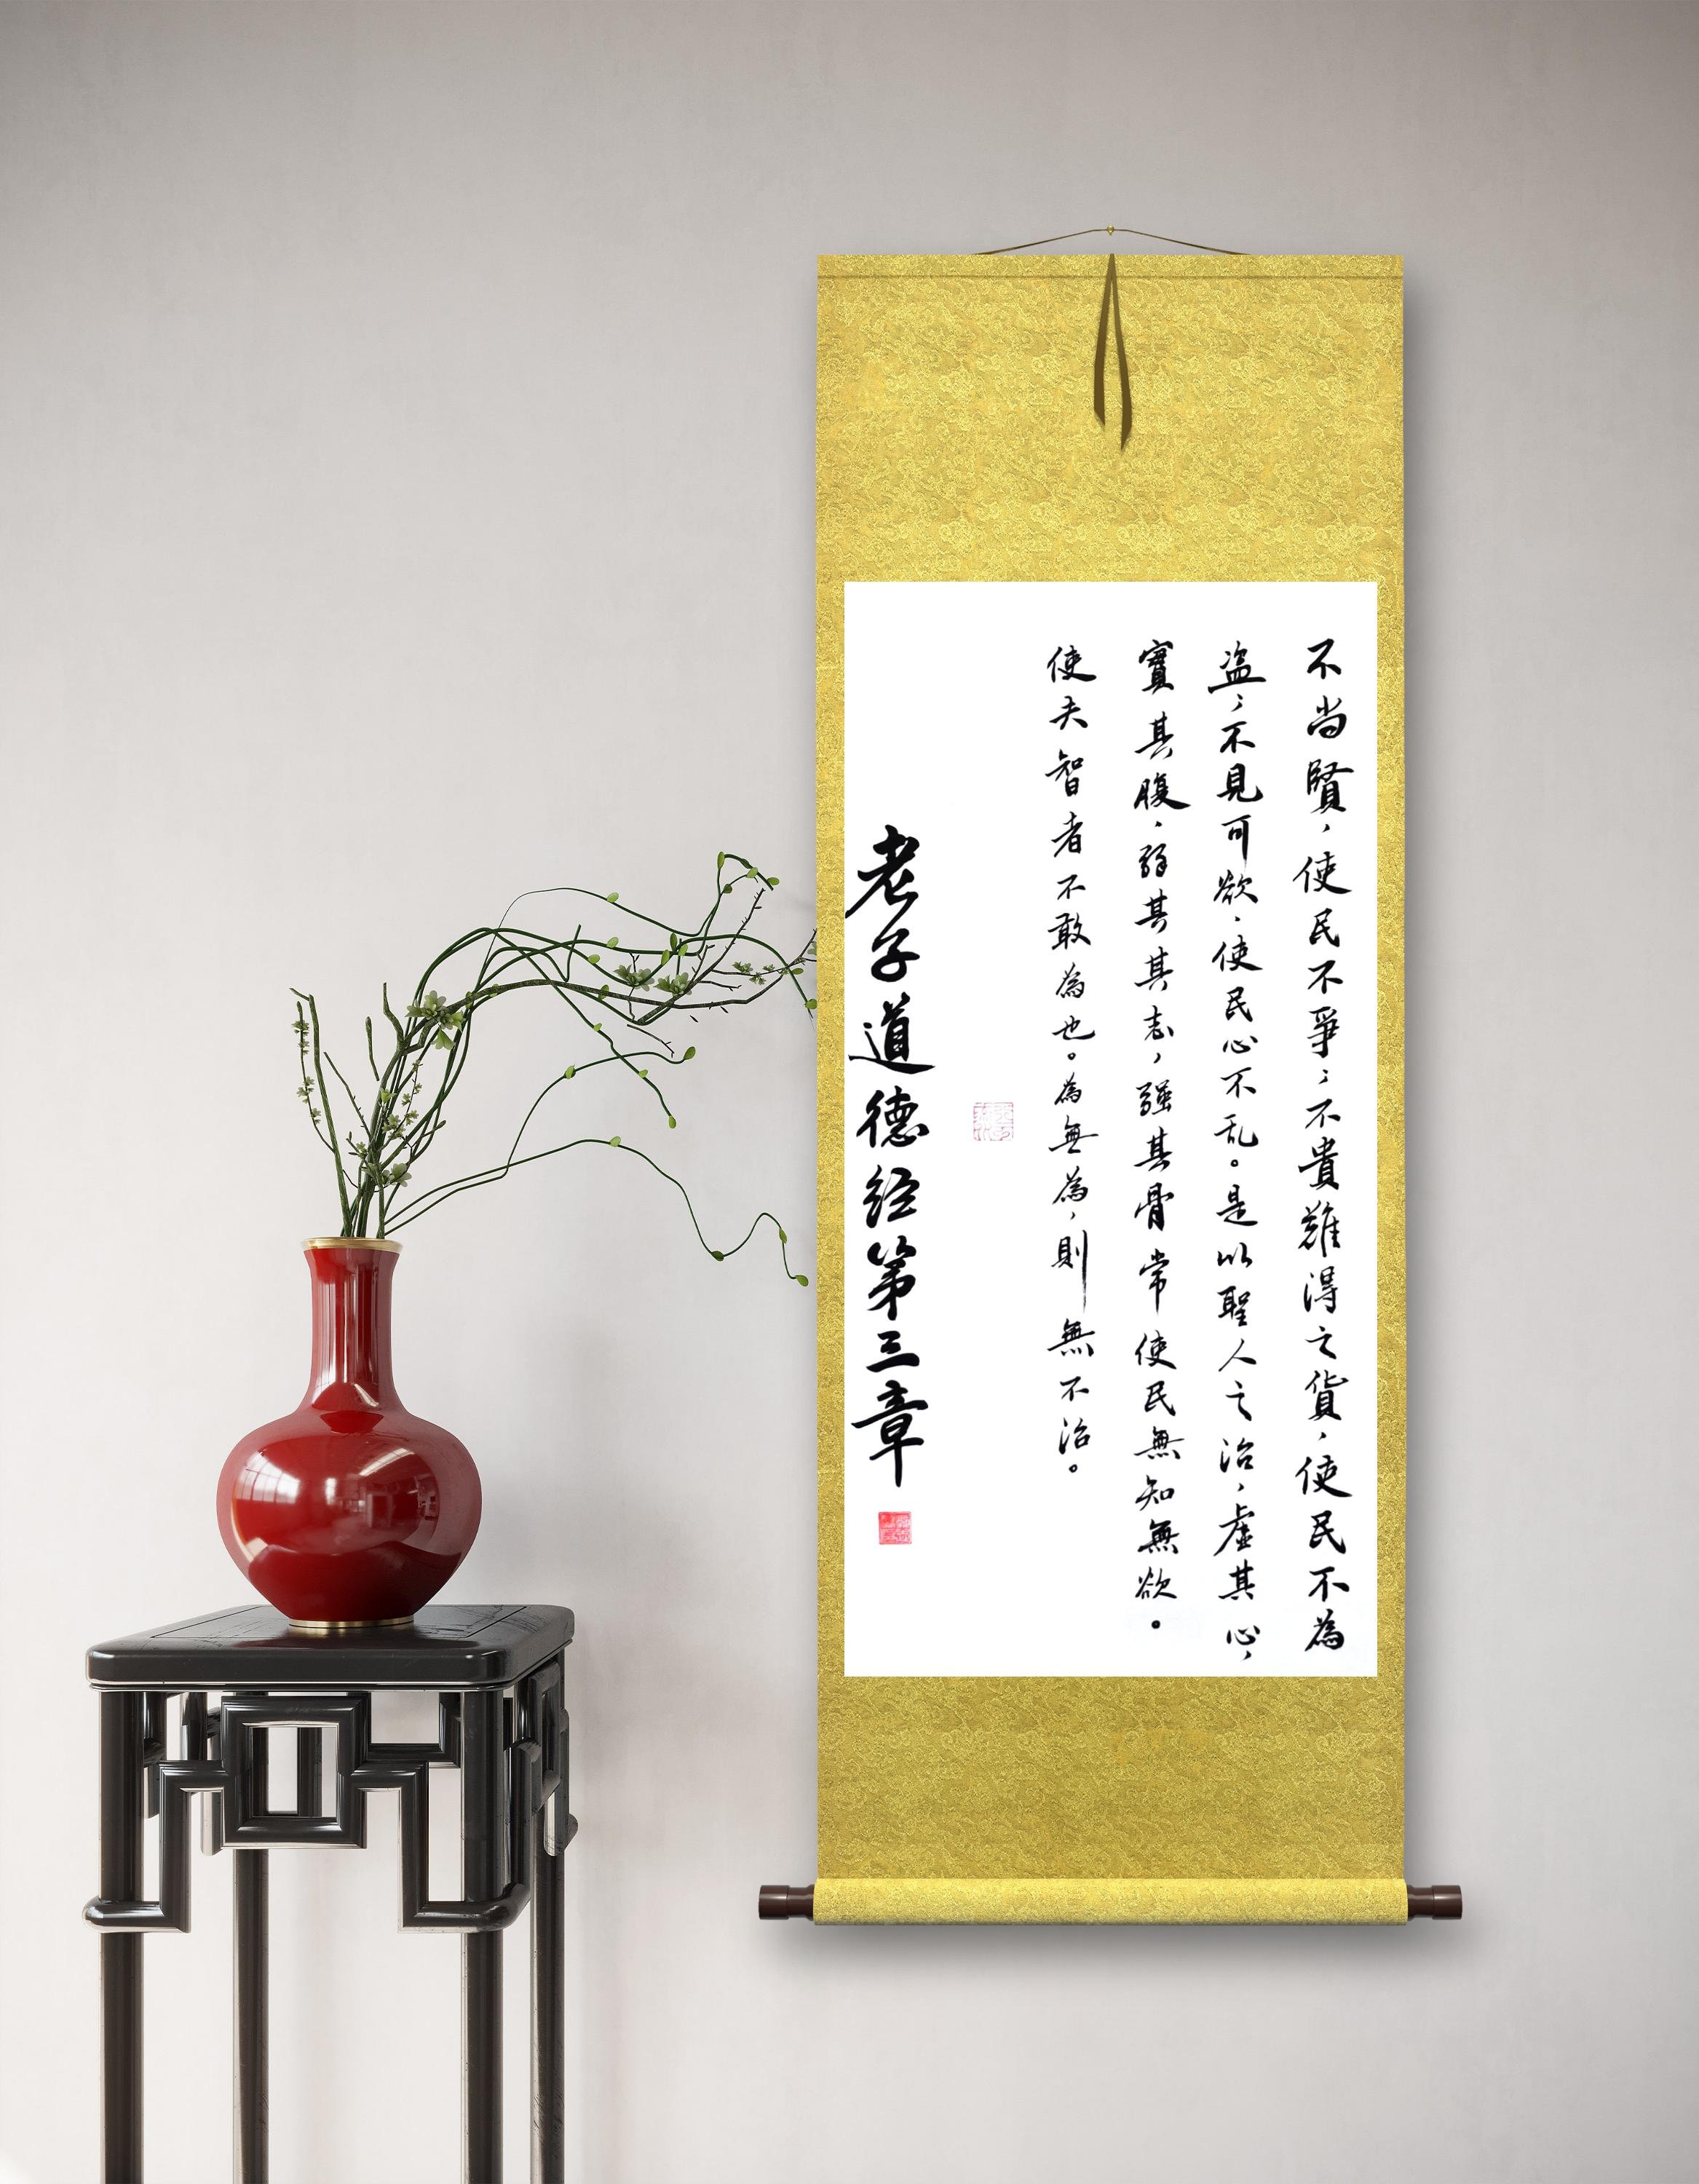 不尚賢，使民不爭；不貴難得之貨，使民不為
盗；不見可欲，使民心不乱。是以聖人之治，虛其心，
實其腹，弱其其志，强其骨常使民無知無欲。
使夫智者不敢為也。為無為，則無不治。
老子道德经第三章